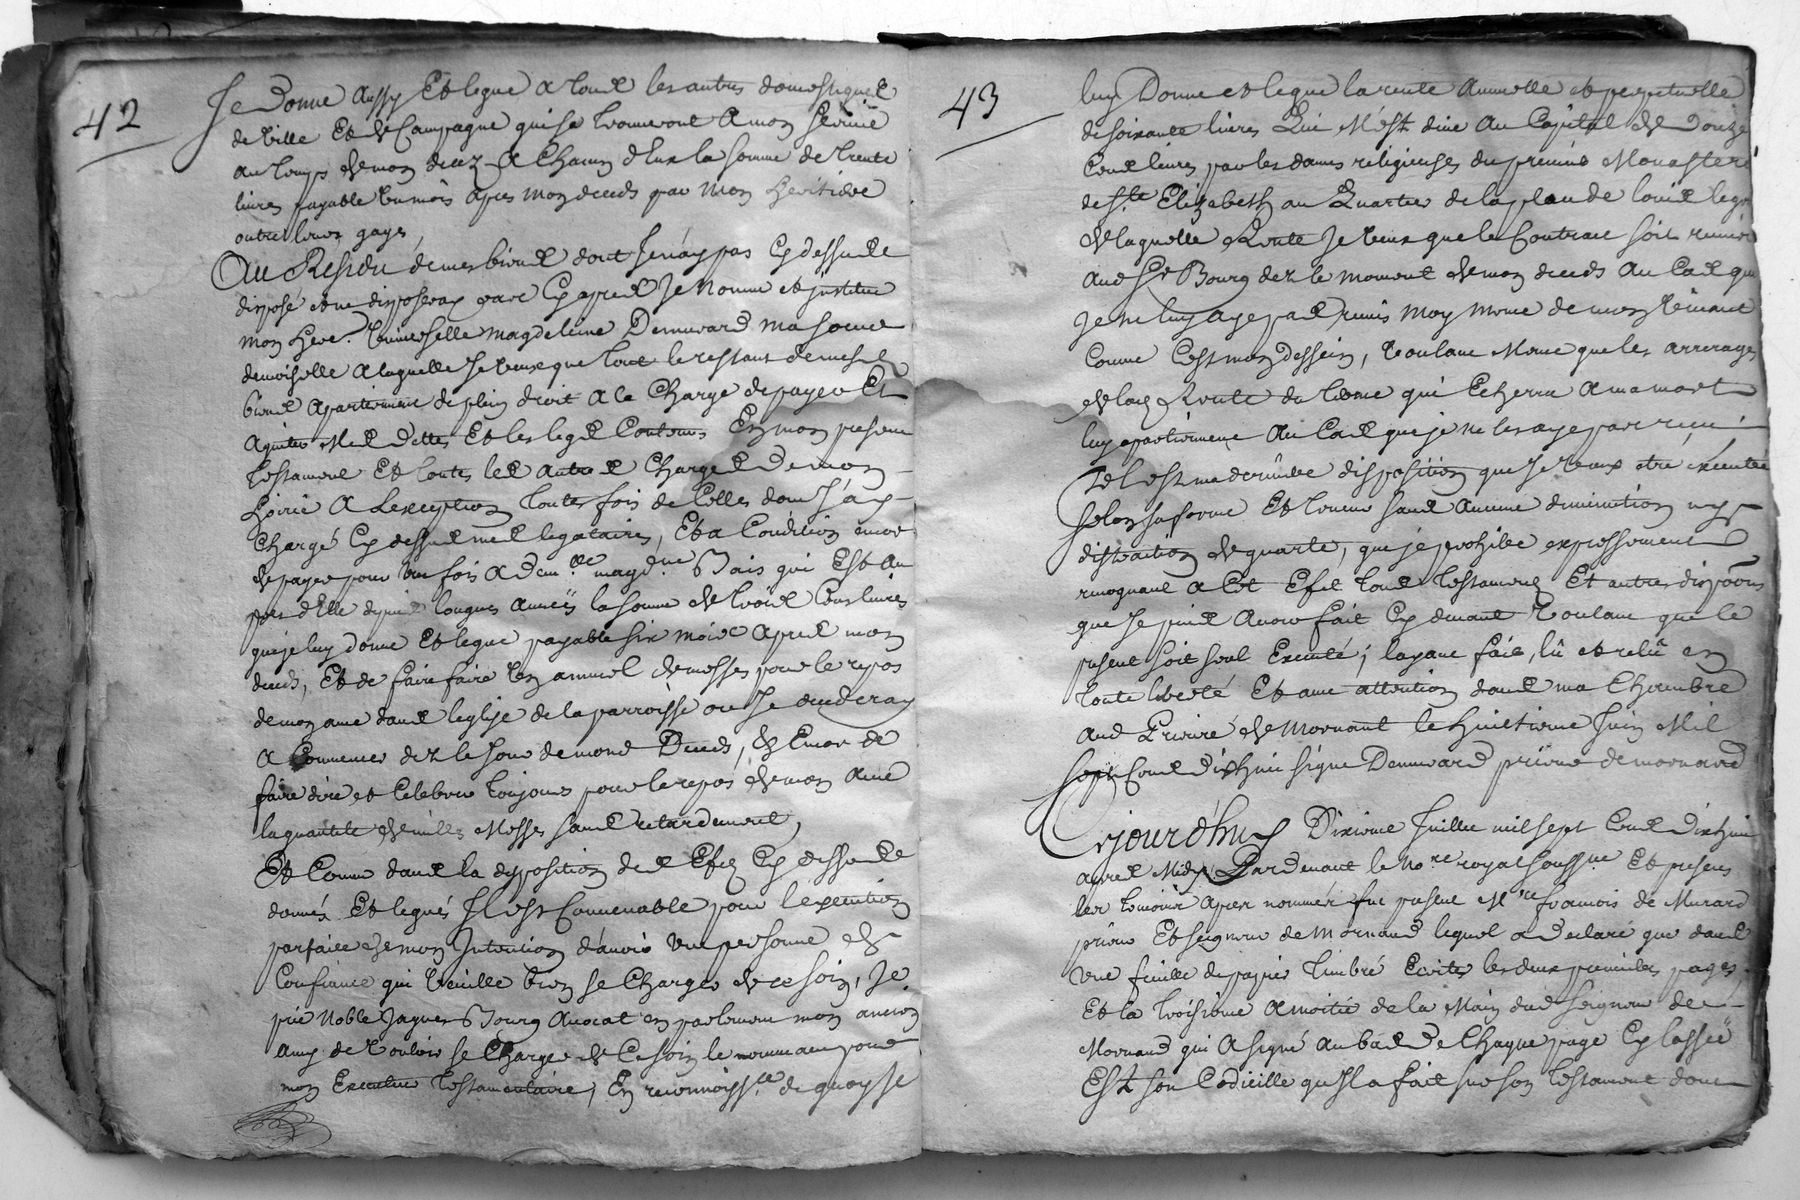 42
Je donne aussy Et legue a tous les autres domestiques
de Ville Et de Campagne qui se trouveront a mon service
au temps de mon decez a Chacun d'Eux la somme de trente
livres payable un mois apres mon deceds par mon heritiere
outre leurs gages,
Au Residu de mes biens dont Je n'ay pas Cy dessus
disposé et ne disposeray par Cy apres Je nomme et institue
mon here. Universelle magdeleine Demurard ma soeur
demoiselle a laquelle Je veux que tout le restant de mesd
biens apartiennent de plein droit a la Charge de payer Et
aquiter Mes dettes Et les legs Contenus En mon present
testament Et toutes les autres Charges de mon
hoirie a L'exception toutes fois de Celles dont J'ay
Chargé Cy dessus mes legataires, Et a Condition encor
de payer pour une fois a dem.lle magd.ne Bais qui Est au
pres d'Elle depuis longues années la somme de trois Cens livres
que je luy donne Et legue payable six mois apres mon
deceds, Et de faire faire un annuel de messes pour le repos
de mon ame dans l'eglise de la parroisse ou Je decederay
a Commencer dez le Jour de mond Deceds, Et Encor de
faire dire et Celebrer toujours pour le repos de mon ame
la quantité de milles Messes sans retardement,
Et Comme dans la disposition des Efets Cy dessus
donnés Et legués Il est Convenable pour l'execution
parfaite de mon Intention d'avoir une personne de
Confiance qui Veuille bien se Charger de ce soin, Je
prie Noble Jaques Bourg Avocat en parlement mon ancien
amy de Vouloir se Charger de Ce soin le nommant pour
mon Executeur testamentaire, En reconnoiss.ce de quoy Je
43
luy Donne et legue la rente annuelle et perpetuelle
de soixante livres Qui M'est due au Capital de Douze
Cens livres par les dames religieuses du premier Monastere
de S.te Elizabeth au Quartier de la place de louis le gr
de laquelle Rente Je veux que le Contract soit remis
aud S.r Bourg dez le moment de mon deceds au Cas que
Je ne luy aye pas remis moy meme de mon Vivant
Comme C'est mon dessein, Voulant Meme que les arrerages
de lad Rente du terme qui Echerra a ma mort
luy apartiennent au Cas que je ne les aye pas reçu
Tel est ma derniere disposition que Je veux etre executée
selon sa forme Et teneur sans aucune diminution ny
distraction de quarte, que je prohibe expressement
revoquant a Cet Efet tous testamens Et autres dispoõns
que Je puis avoir fait Cy devant Voulant que le
present soit seul Executé; layant fait, lû et relû en
toute liberté Et avec attention dans ma Chambre
aud Prieuré de Mornant le huitieme Juin Mil
sept Cens dix huit signe Demurard prieur de mornand
Cejourd'huy Dixieme Juillet mil sept Cens dix huit
apres Midy Pardevant le No.re royal souss.né Et presens
les temoins apres nommés fut present M.re francois de Murard
prieur Et seigneur de Mornand lequel a declaré que dans
une feuille de papier timbré Ecrites les deux premieres pages
Et la troisieme a moitie de la Main dud seigneur de
Mornand qui a signé au bas de Chaque page Cy lassée
Est son Codicille qu'Il a fait sur son testament dont